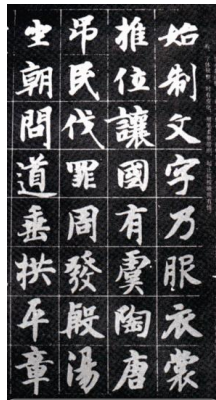 始制文字乃服衣裳
推位讓國有虞陶唐
弔民伐罪周發殷湯
坐朝問道垂拱平章